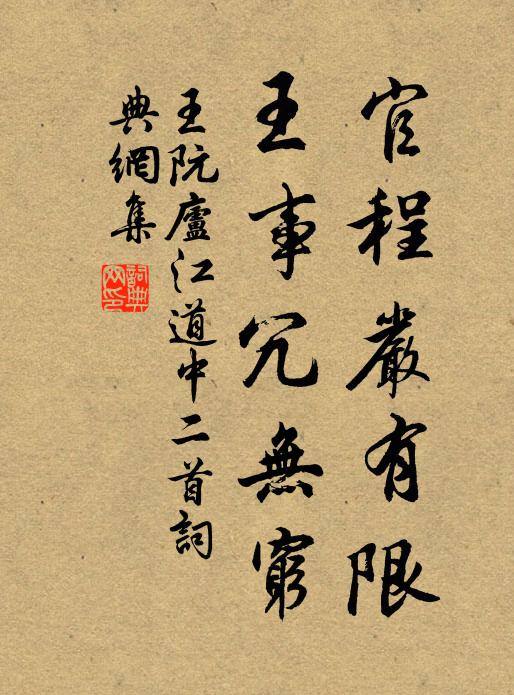 官程嚴有限
王事冗無窮
王阮廬江道中二首詞
典網集
詞典網印